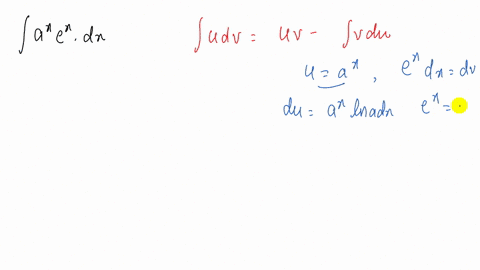 ∫ aˣ eˣ · dx   ∫ u dv = uv − ∫ v du
u = aˣ , eˣ dx = dv
du = aˣ ln a dx   eˣ =